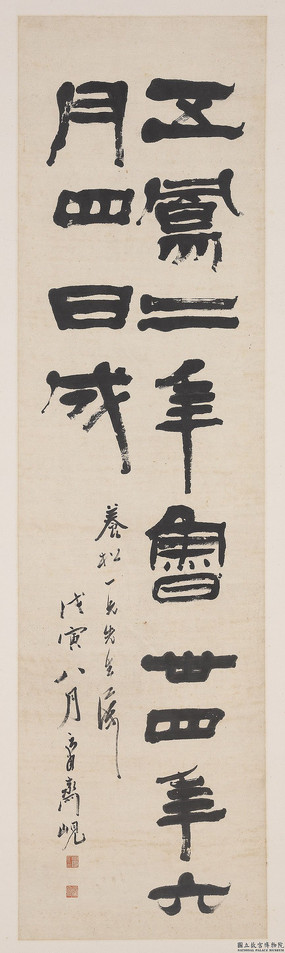 五鳳二年魯卅四年六
月四日成
養松一兄先生
戊寅八月
國立故宮博物院
NATIONAL PALACE MUSEUM